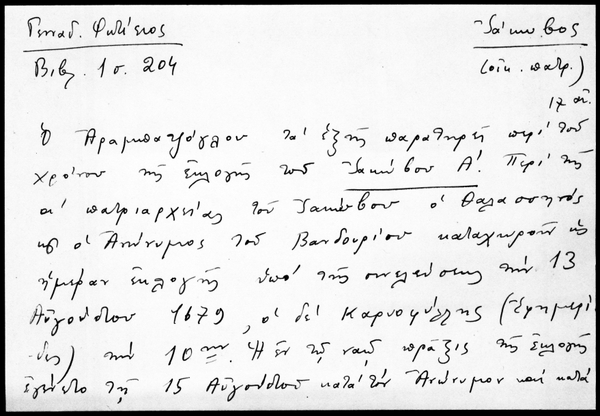 Γενναδ. Φωτίειος
Βιβ. 1 σ. 204
Ἰάκωβος
(οἰκ. πατρ.)
17 αἰ.
Ὁ Ἀραμπατζόγλου τά ἑξῆς παρατηρεῖ περί τοῦ
χρόνου τῆς ἐκλογῆς τοῦ Ἰακώβου Α΄. Περί τῆς
α΄ πατριαρχείας τοῦ Ἰακώβου ὁ Θαλασσηνός
καί ὁ Ἀνώνυμος τοῦ Βανδουρίου καταχωροῦν ὡς
ἡμέραν ἐκλογῆς ὑπό τῆς συνελεύσεως τήν 13
Αὐγούστου 1679, ὁ δέ Καρυοφύλλης (Ἐφημερί-
δες) τήν 10ην. Ἡ ἐν τῷ ναῷ πρᾶξις τῆς ἐκλογῆς
ἐγένετο τῇ 15 Αὐγούστου κατά τόν Ἀνώνυμον καί κατά